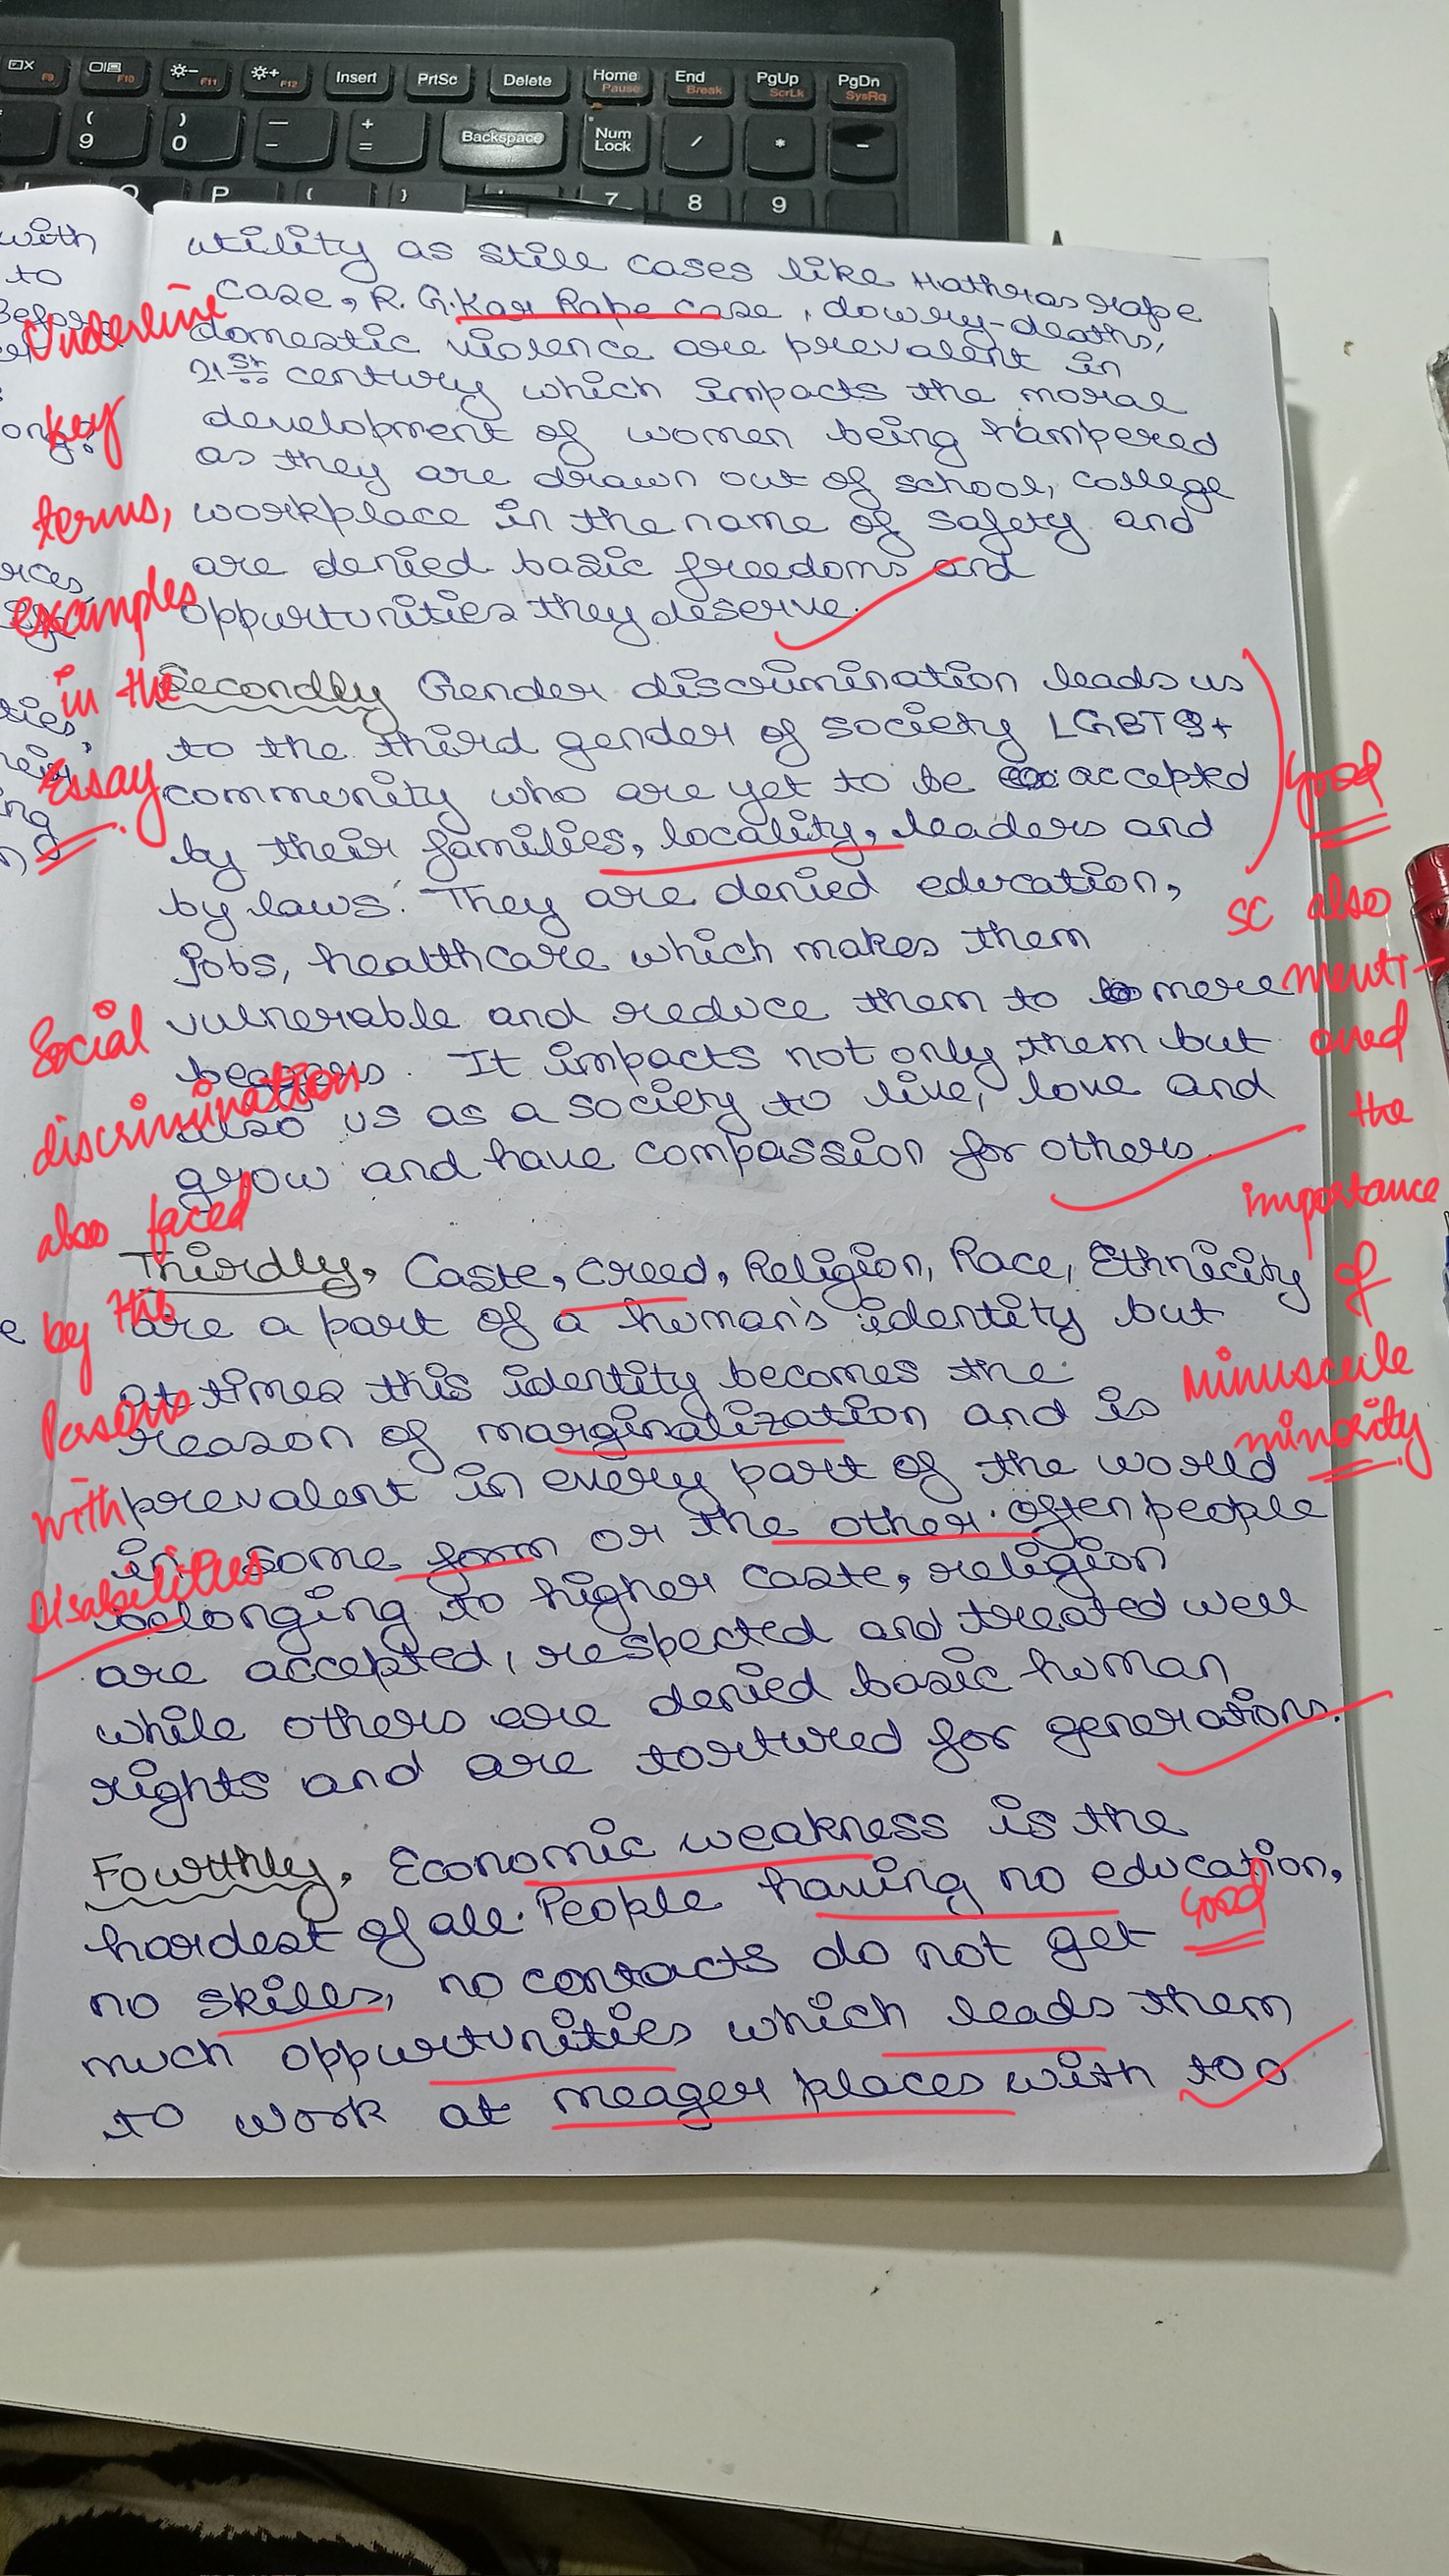 F9 F10 F11 F12 Insert PrtSc Delete Home Pause End Break PgUp ScrLk PgDn SysRq
( 9 ) 0 — - + = Backspace Num Lock / * -
O P { } 7 8 9
with
to
utility as still cases like Hathras rape
case, R. G. Kar Rape case, dowry-deaths,
domestic violence are prevalent in
21st century which impacts the moral
development of women being hampered
as they are drawn out of school, college
workplace in the name of safety and
are denied basic freedoms and
oppurtunities they deserve.
Secondly Gender discrimination leads us
to the third gender of society LGBTQ+
community who are yet to be accepted
by their families, locality, leaders and
by laws. They are denied education,
jobs, healthcare which makes them
vulnerable and reduce them to mere
beggers. It impacts not only them but
also us as a society to live, love and
grow and have compassion for others.
Thirdly, Caste, creed, Religion, Race, Ethnicity
are a part of a human's identity but
at times this identity becomes the
reason of marginalization and is
prevalent in every part of the world
in some form or the other. Often people
belonging to higher caste, religion
are accepted, respected and treated well
while others are denied basic human
rights and are tortured for generations.
Fourthly, Economic weakness is the
hardest of all. People having no education,
no skills, no contacts do not get
much oppurtunities which leads them
to work at meager places with too
Underline
key
terms,
examples
in the
Essay.
Social
discrimination
also faced
by the
Persons
with
Disabilities
Good
SC also
menti-
oned
the
importance
of
minuscule
minority.
Good